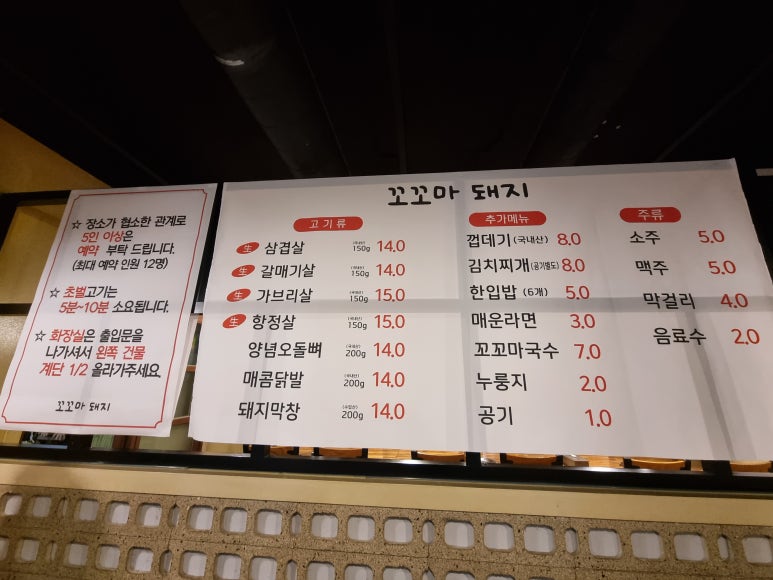 ☆ 장소가 협소한 관계로
5인 이상은
예약 부탁 드립니다.
(최대 예약 인원 12명)
☆ 초벌고기는
5분~10분 소요됩니다.
☆ 화장실은 출입문을
나가셔서 왼쪽 건물
계단 1/2 올라가주세요.
꼬꼬마 돼지
꼬꼬마 돼지
고기류
生 삼겹살 (국내산) 150g 14.0
生 갈매기살 (국내산) 150g 14.0
生 가브리살 (국내산) 150g 15.0
生 항정살 (국내산) 150g 15.0
양념오돌뼈 (국내산) 200g 14.0
매콤닭발 (국내산) 200g 14.0
돼지막창 200g 14.0
추가메뉴
껍데기 (국내산) 8.0
김치찌개 (공기별도) 8.0
한입밥 (6개) 5.0
매운라면 3.0
꼬꼬마국수 7.0
누룽지 2.0
공기 1.0
주류
소주 5.0
맥주 5.0
막걸리 4.0
음료수 2.0